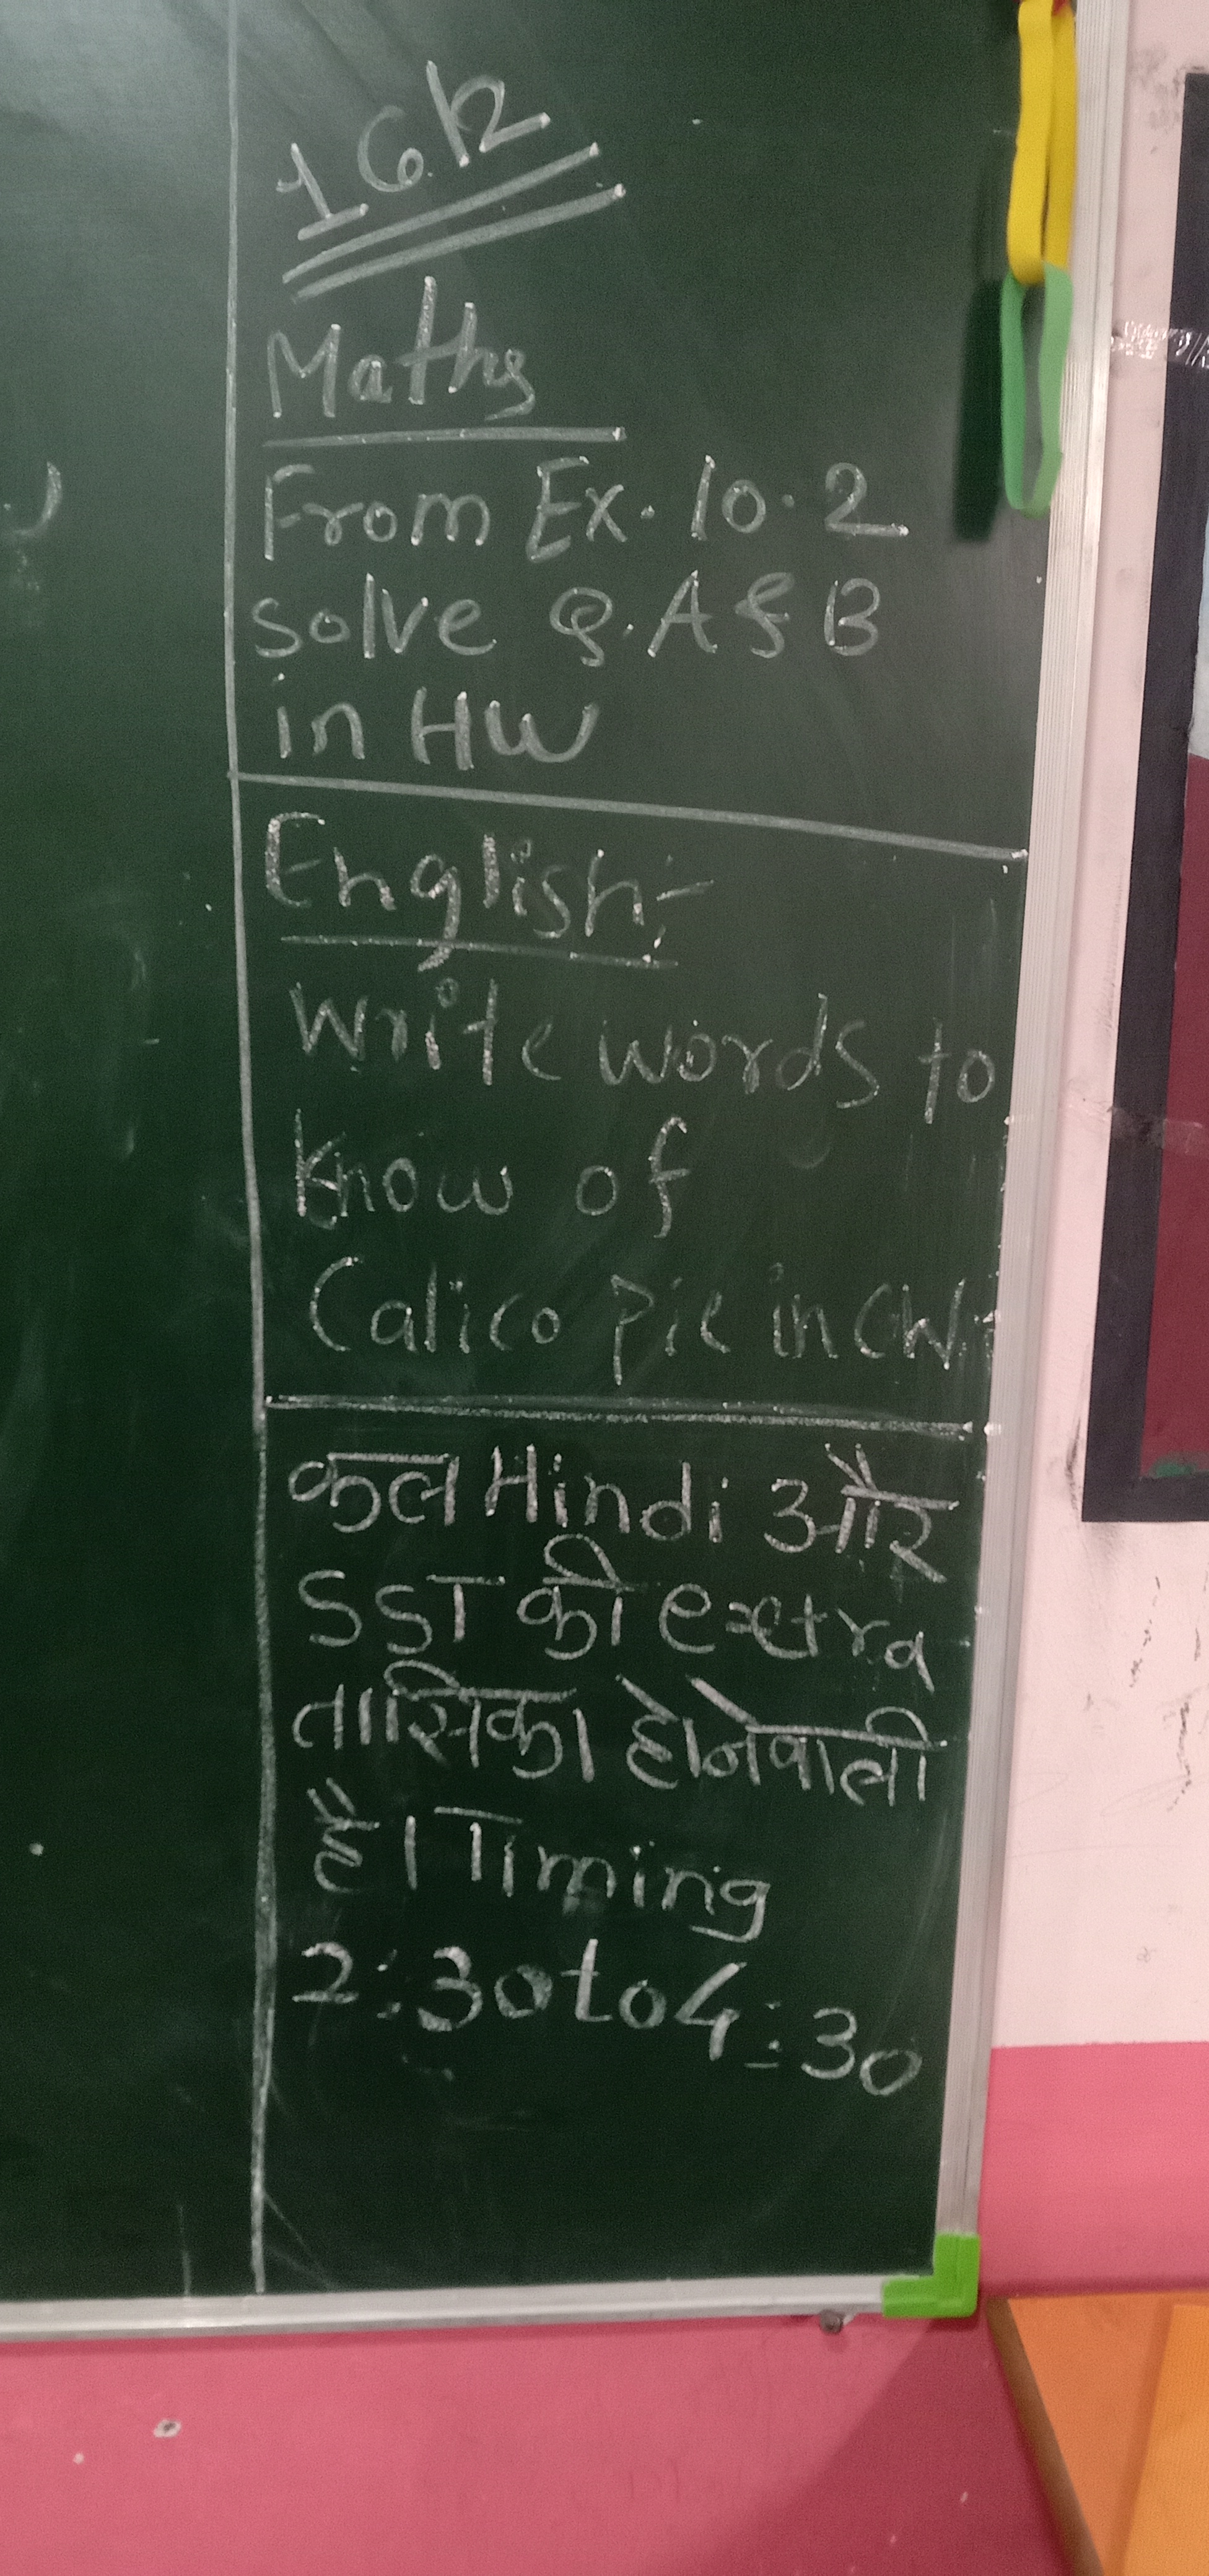 16/12
Maths
From Ex. 10.2
solve Q.A & B
in HW
English:-
Write words to
know of
Calico pie in CW.
कल Hindi और
SST की extra
तासिका होनेवाली
है। Timing
2:30 to 4:30